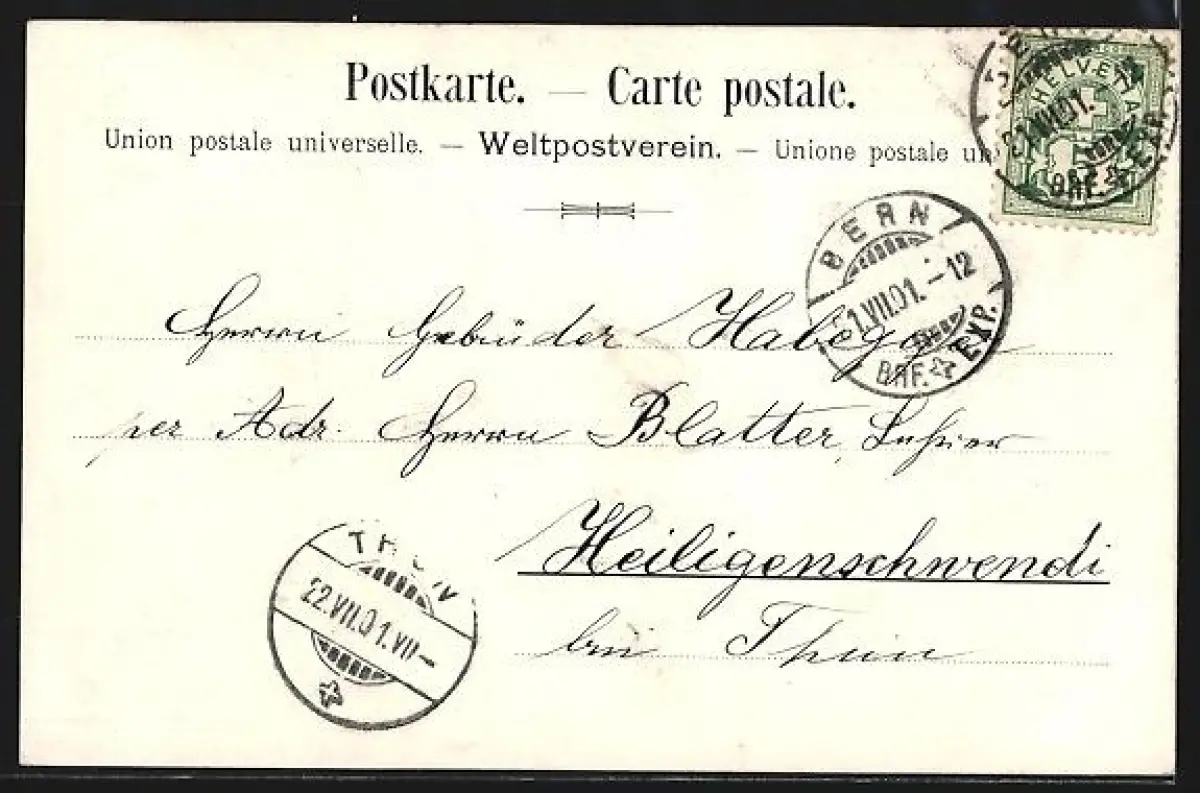 Postkarte. — Carte postale.
Union postale universelle. — Weltpostverein. — Unione postale un
HELVETIA
21.VII.01.
BRF. EXP.
BERN
21.VII.01.–12
BRF. EXP.
Herrn Gebrüder
per Adr. Herrn Blatter,
Heiligenschwendi
bei Thun
THUN
22.VII.01.VII–